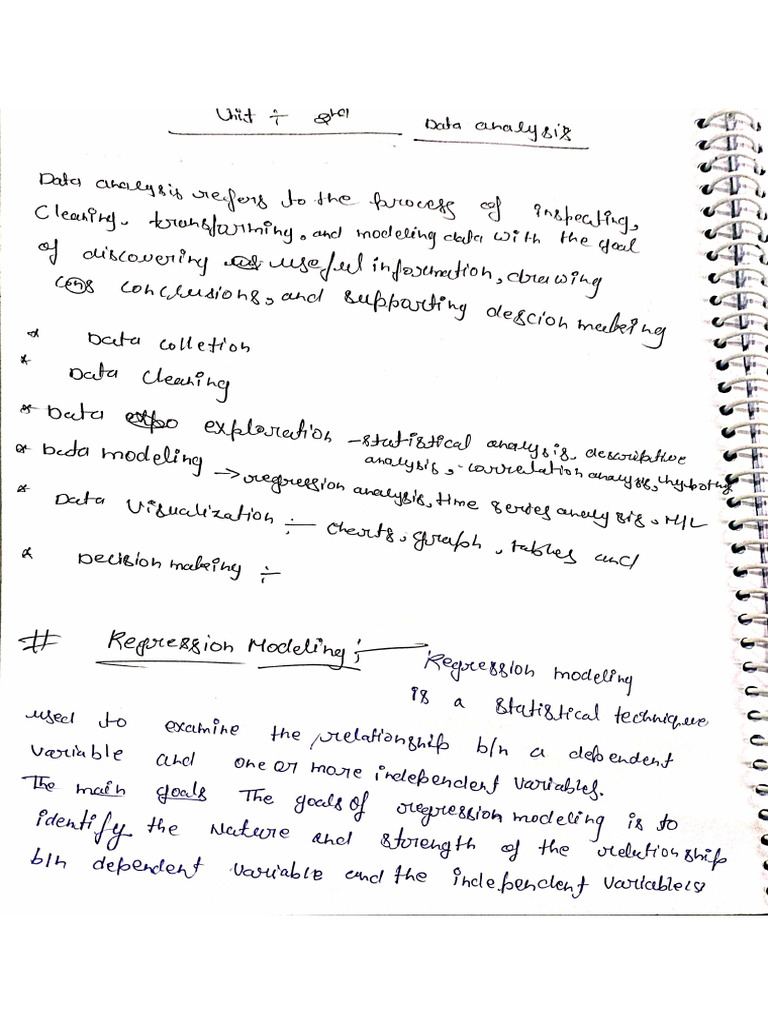 Unit ÷ 2nd Data analysis
Data analysis refers to the process of inspecting,
Cleaning, transforming, and modeling data with the goal
of discovering useful information, drawing
conclusions, and supporting descion makeing
* Data colletion
* Data Cleaning
* Data exploration - statistical analysis, descriptive
analysis, - correlation analysis,
* Data modeling → regression analysis, time series analysis, M/L
* Data Visualization ÷ charts, graph, tables and
* Decision makeing ÷
# Regression Modeling ; Regression modeling
is a statistical technique
used to examine the relationship b/n a dependent
variable and one or more independent variables.
The main goals The goals of regression modeling is to
identify the Nature and strength of the relationship
b/n dependent variable and the independent variable(s